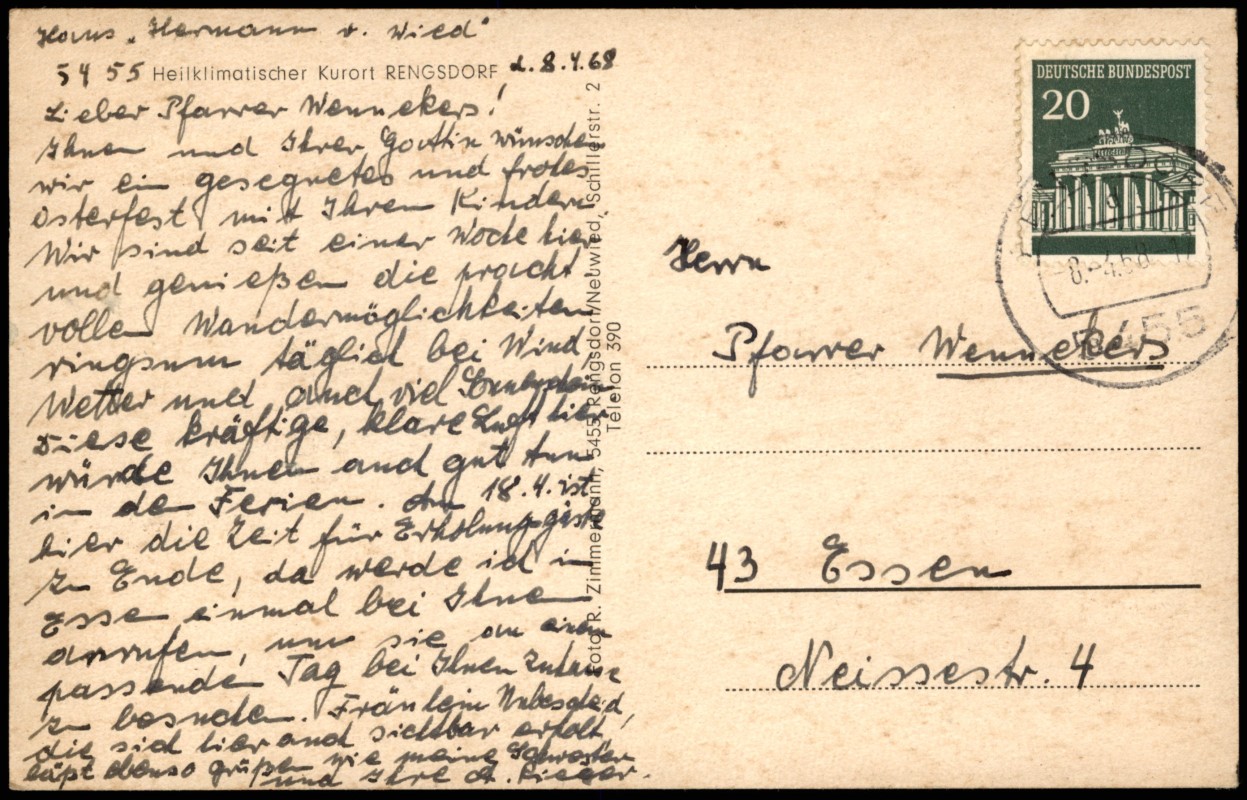 Haus "Hermann v. Wied"
5455 Heilklimatischer Kurort RENGSDORF d. 8.4.68
Lieber Pfarrer Wennekers!
Ihnen und Ihrer Gattin wünschen
wir ein gesegnetes und frohes
Osterfest mit Ihren Kindern
Wir sind seit einer Woche hier
und genießen die pracht
vollen Wandermöglichkeiten
ringsum täglich bei Wind,
Wetter und auch viel Sonnenschein
Diese kräftige, klare Luft hier
würde Ihnen auch gut tun
in den Ferien. Am 18.4. ist
hier die Zeit für Erholungsgäste
zu Ende, da werde ich in
Essen einmal bei Ihnen
anrufen, um sie an einem
passenden Tag bei Ihnen Zuhause
zu besuchen. Fräulein
die sich hier auch sichtbar erholt,
läßt ebenso grüßen wie meine Schwester
und Ihre Rieger.
Foto R. Zimmermann, 5455 Rengsdorf/Neuwied, Schillerstr. 2
Telefon 390
DEUTSCHE BUNDESPOST
20
8.-4.68
5455
Herrn
Pfarrer Wennekers
43 Essen
Neissestr. 4